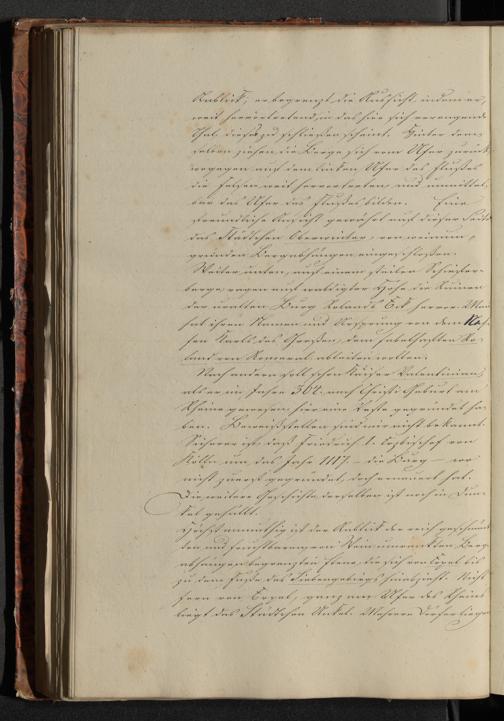 Anblick; er begrenzt die Aussicht, indem er,
weit hervortretend, in das hier sich verengende
Thal dieses zu schließen scheint. Hinter dem-
selben ziehen die Berge sich vom Ufer zurück,
wogegen auf dem linken Ufer des Flußes
die Felsen weit hervortreten, und unmittel-
bar das Ufer des Flußes bilden. Eine
freundliche Ansicht gewährt auf dieser Seite
das Städtchen Oberwinter, von weinum-
grünten Bergabhängen eingeschloßen.
Weiter unten, auf einem steilen Schiefer-
berge, ragen auf waldigter Höhe die Ruinen
der uralten Burg Rolands Eck hervor. Man
hat ihren Namen und Ursprung von dem Nef-
fen Karls des Großen, dem fabelhaften Ro-
land von Ronceval, ableiten wollen.
Nach andern soll schon Kaiser Valentinian,
als er im Jahre 364. nach Christi Geburt am
Rheine gewesen, hier eine Veste gegründet ha-
ben. Beweisstellen sind mir nicht bekannt.
Sicherer ist, daß Friedrich I. Erzbischof von
Kölln um das Jahr 1117. – die Burg – wo
nicht zuerst gegründet, doch erneuert hat.
Die weitere Geschichte derselben ist noch in Dun-
kel gehüllt.
Höchst anmuthig ist der Anblick der reich geschmück-
ten und fruchtbaren, von Wein umrankten Berg-
abhängen begrenzten Ebene, die sich von Erpel bis
zu dem Fuße des Siebengebirgs hinabzieht. Nicht
fern von Erpel, ganz am Ufer des Rheins
liegt das Städtchen Unkel. Mehrere Dörfer liegen